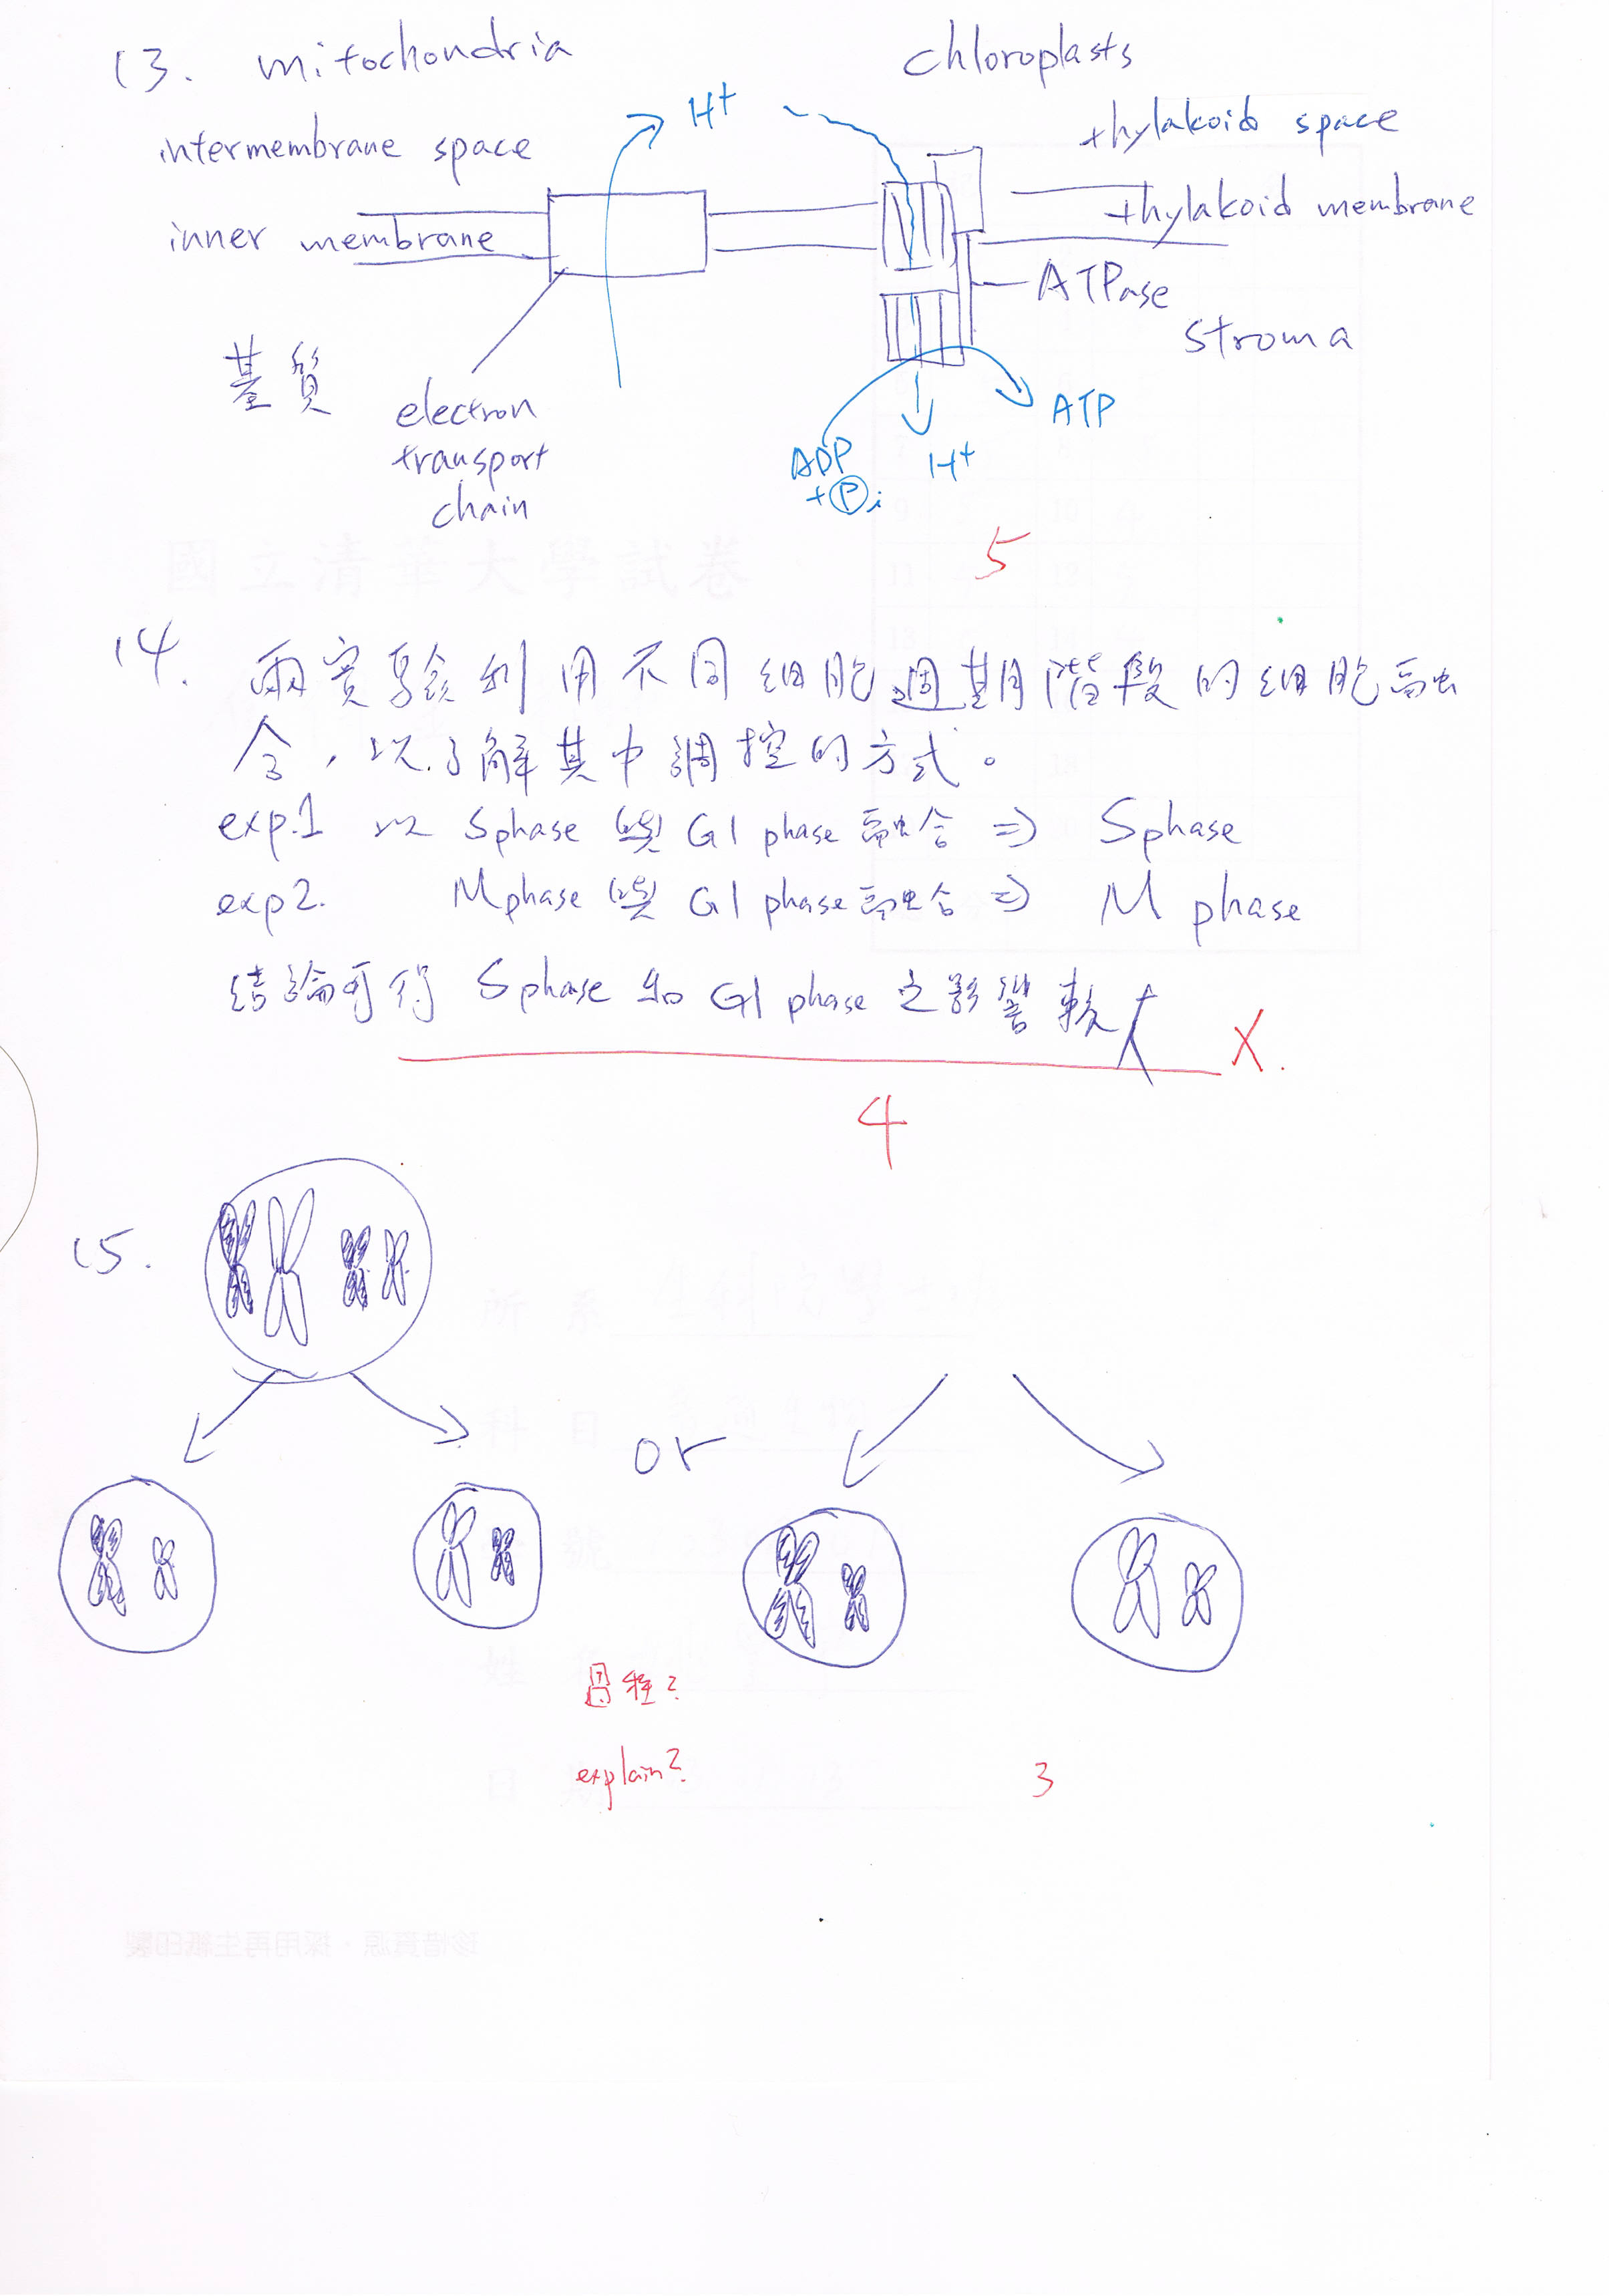 13. mitochondria
chloroplasts
H+
thylakoid space
intermembrane space
thylakoid membrane
inner membrane
ATPase
stroma
基質
electron
transport
chain
ATP
ADP
+Pi
H+
5
國立清華大學試卷
14. 兩實驗利用不同細胞週期階段的細胞融
合,以了解其中調控的方式。
exp.1 以 Sphase 與 G1 phase 融合 ⇒ Sphase
exp2. Mphase 與 G1 phase 融合 ⇒ M phase
結論可得 Sphase 和 G1 phase 之影響較大 X.
4
15.
or
過程?
explain?
3
所系
科目
號
姓
日期
珍惜資源·採用再生紙印製